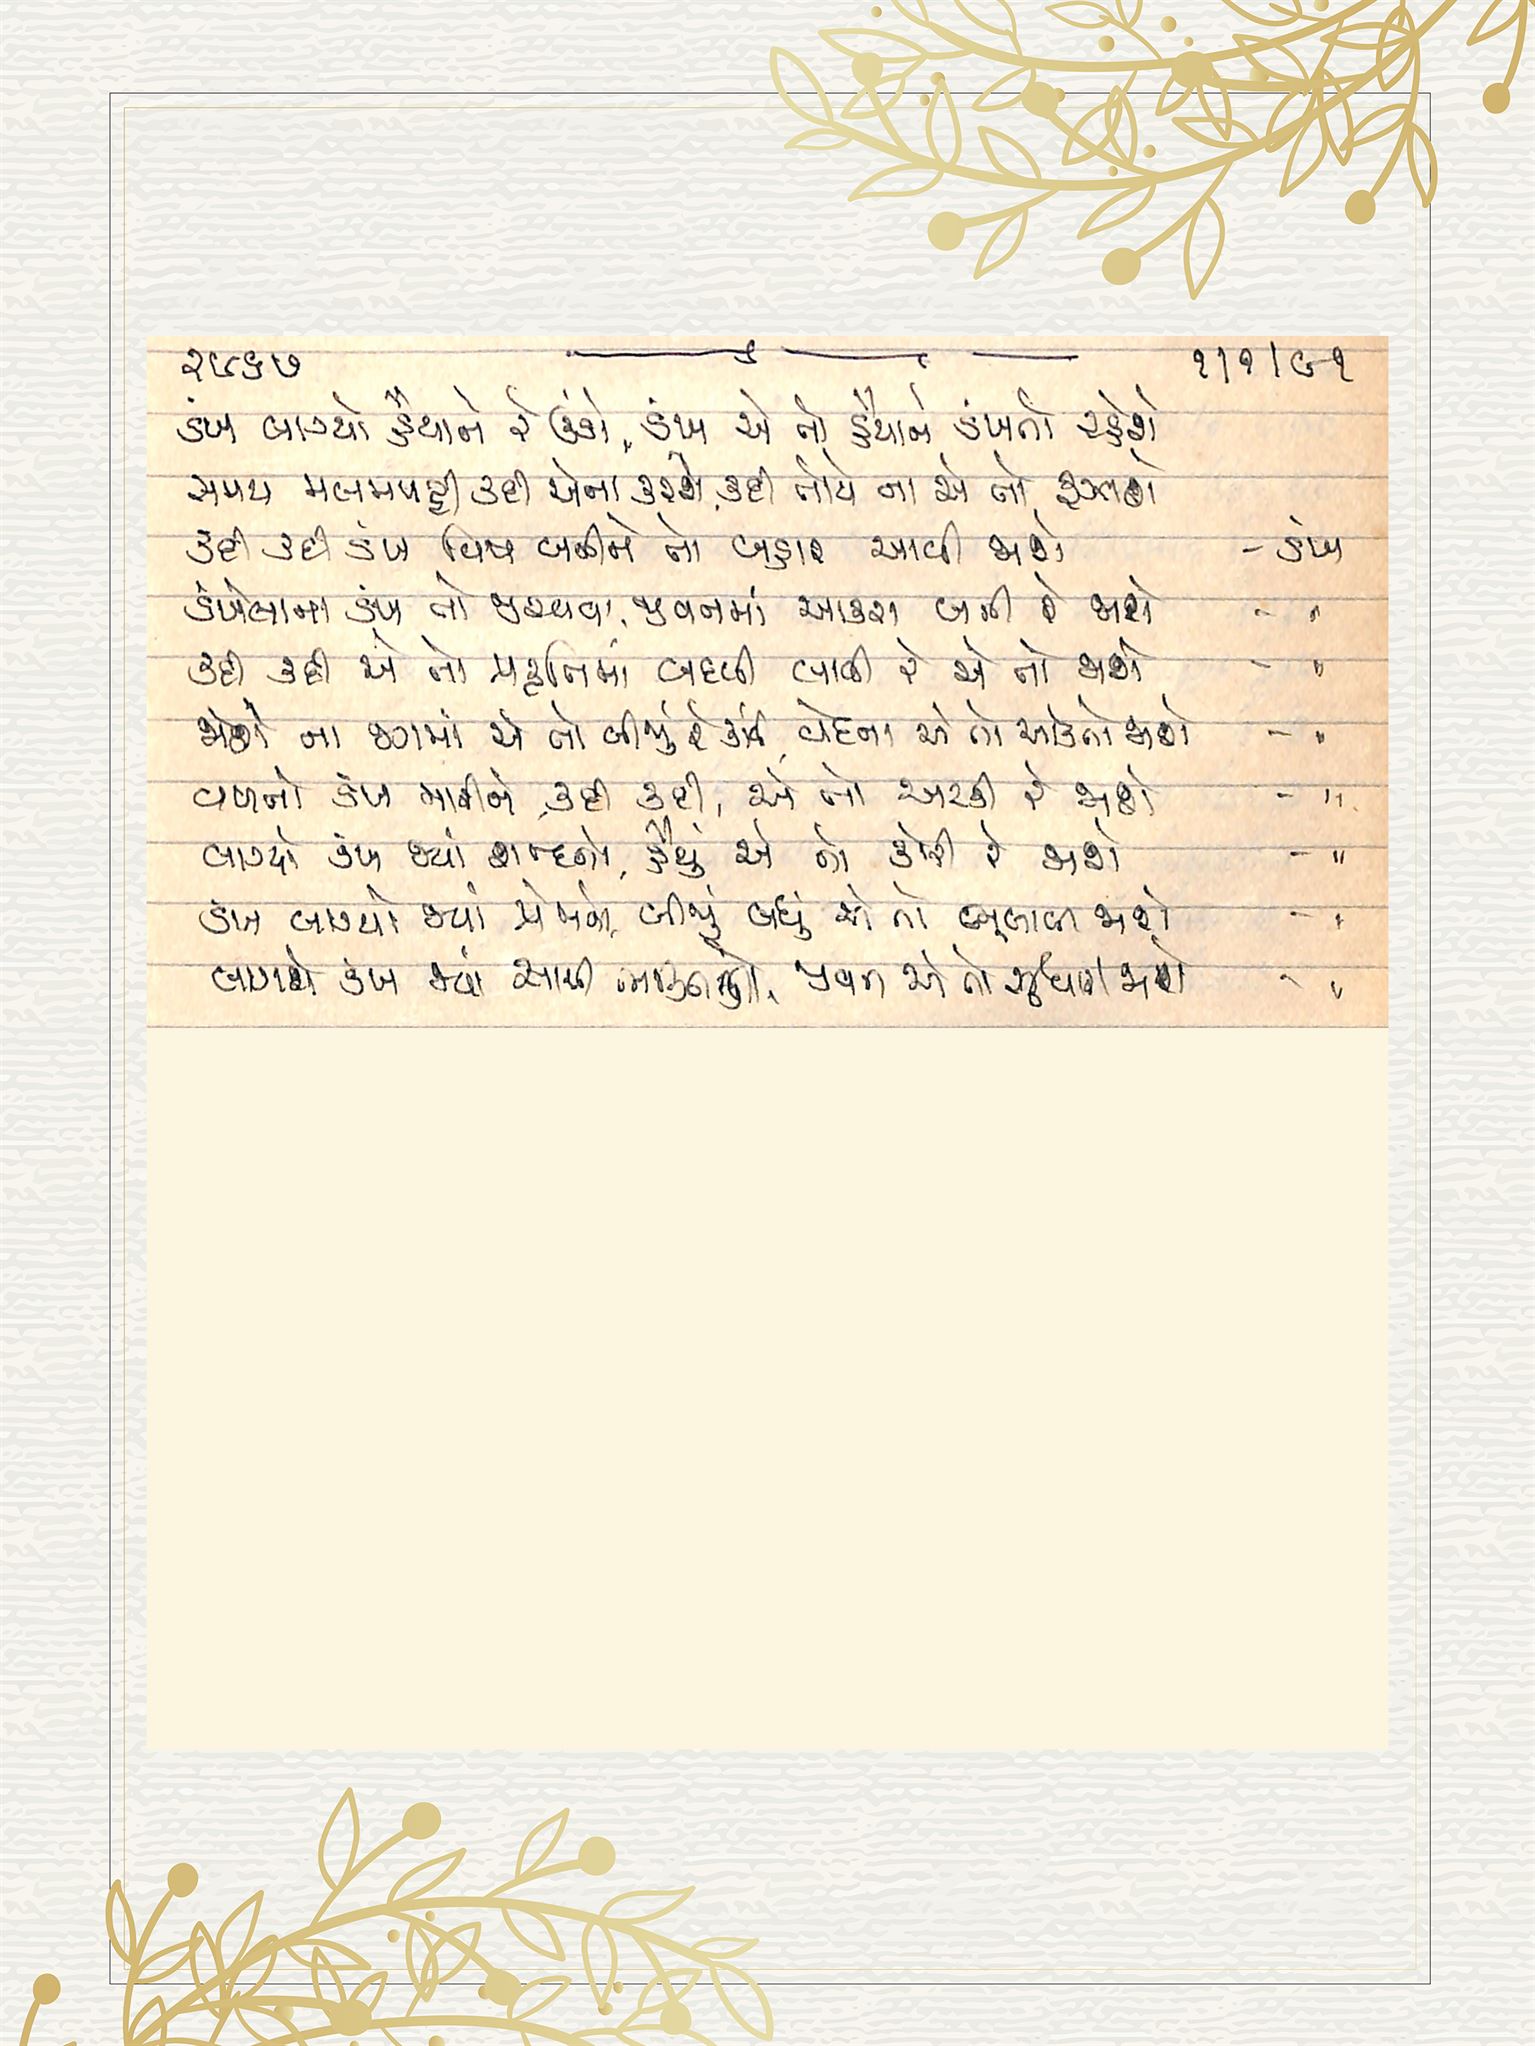 ૨૯૬૭ ૧/૧/૯૧
ડંખ લાગ્યો હૈયાને રે ઊંડો, ડંખ એ તો હૈયાને ડંખતો રહેશે
સમય મલમપટ્ટી કદી એના કરશે, કદી તોયે ના એ તો રૂઝાશે
કદી કદી ડંખ વિષ બનીને તો બહાર આવી જાશે - ડંખ
ડંખેલાના ડંખ તો જીરવવા, જીવનમાં આકરા બની રે જાશે - "
કદી કદી એ તો પ્રકૃતિમાં બદલી લાવી રે એ તો જાશે - "
જોશે ના જગમાં એ તો બીજું રે કાંઈ, વેદના એ તો ઓકતો જાશે - "
વળતો ડંખ મારીને કદી કદી, એ તો અટકી રે જાશે - "
લાગ્યો ડંખ જ્યાં શબ્દનો, હૈયું એ તો કોરી રે જાશે - "
ડંખ લાગ્યો જ્યાં પ્રેમનો, બીજું બધું એ તો ભુલાવી જાશે - "
લાગશે ડંખ જ્યાં સાચી ભક્તિનો, જીવન એ તો સુધારી જાશે - "